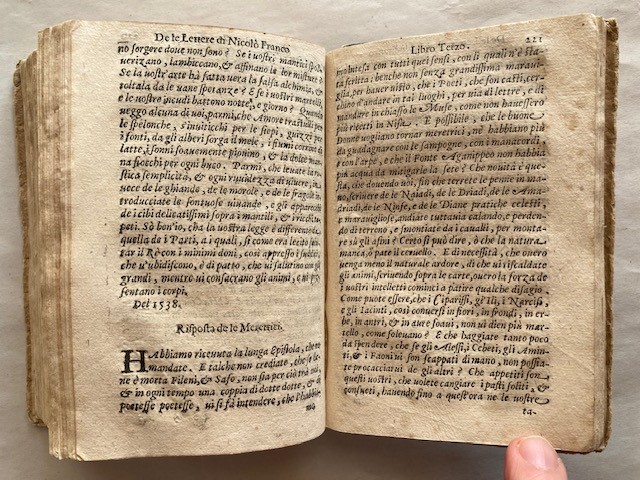 De le Lettere di Nicolò Franco
nò sorgere doue non sono? Se i vostri mantici
uerizano, lambiccano, & affinano le lor misture?
Se la vostr'arte hà fatta uera la falsa alchimia, &
toltala da le uane speranze? E se i uostri martelli,
e le vostre incudi battono notte, e giorno? Quando
ueggo alcuna di uoi, parmi, che Amore trastulli per
le spelonche, s'inuiticchi per le siepi, guizzi per
i fonti, da gli alberi sorga il mele, i fiumi corrano di
latte, i sonni soauemente pionino, & la dolce
na fiocchi per ogni buco. Parmi, che leuate la
stica semplicità, e ogni ruuidezza di uiuere, in
uece de le ghiande, de le morole, e de le fragole in
troducciate le sontuose uiuande, e gli apparecchi
de i cibi delicatissimi sopra i mantili, & i ricolti
peti. Sò ben'io, cha la uostra legge è differente da
quella de i Parti, a i quali, si come era lecito salu-
tar il Rè con i minimi doni, così appresso i
che u'ubidiscono, è di patto, che ui salutino con più
grandi, mentre ui consacrano gli animi, e ui
sentano i corpi.
Del 1538.
Risposta de le Meretrici.
HAbbiamo riceuuta la lunga Epistola, che
mandate. E talche non crediate, che se
ne è morta Fileni, & Safo, non sia per ciò trà noi,
& in ogni tempo una coppia di dotte dotte, e di
poetesse poetesse, ui si fà intendere, che l'habbia-
mo
Libro Terzo. 221
mo intesa con tutti quei sensi, con li quali n'è sta-
ta scritta: benche non senza grandissima maraui-
glia, per hauer uisto, che i Poeti, che son casti, cer-
chino d'andare in tai luoghi, per uia di lettre, e di
mandare in chiasso le Muse, come non hauessero
più ricetti in Nisa. E possibile, che le buone
Donne uogliano tornar meretrici, nè habbiano più
da guadagnare con le sampogne, con i manacordi,
e con l'arpe, e che il Fonte Aganippeo non habbia
più acqua da mitigarle la sete? Che nouità è que-
sta, che douendo uoi, sin che terrete le penne in ma-
no, scriuere de le Naiadi, de le Driadi, de le Ama-
driadi, de le Ninfe, e de le Diane pratiche celesti,
e marauigliose, andiate tuttauia calando, e perden-
do di terreno, e smontiate da i caualli, per monta-
re sù gli asini? Certo si può dire, ò che la natura
manca, ò pate il ceruello. E di necessità, che ouero
uenga meno il naturale ardore, di che ui riscaldate
gli animi, scriuendo sopra le carte, ouero la forza de
i vostri intelletti cominci a patire qualche disagio.
Come puote essere, che i Ciparissi, gè Ili, i Narcisi,
e gli Iacinti, così conuersi in fiori, in frondi, in er-
be, in antri, & in aure soaui, non ui dien più mar-
tello, come soleuano? E che haggiate tanto poco
da spendere, che se gli Alessi, i Cheti, gli Amin-
ti, & i Faoni ui son scappati di mano, non possia-
te procacciarui de gli altri? Che appetiti son
questi uostri, che uolete cangiare i pasti soliti, &
consueti, hauendo fino a quest'ora ne le uostre
ta-